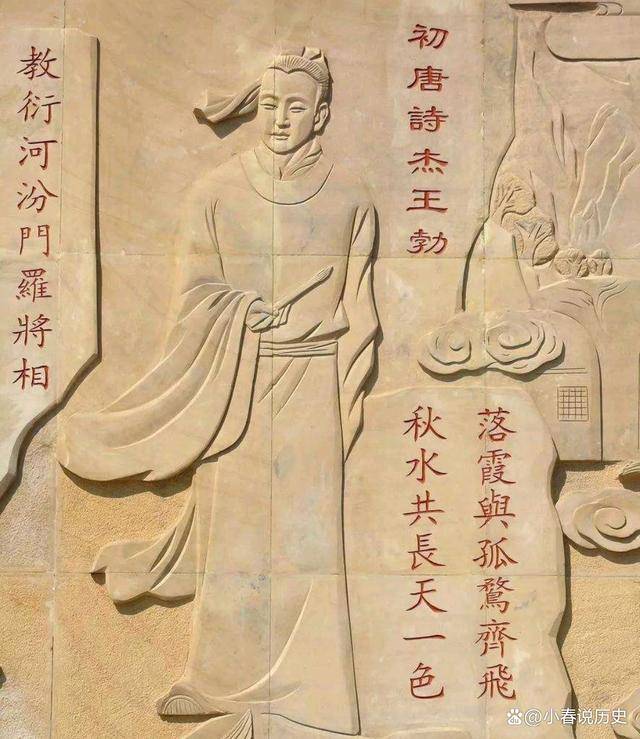 初唐詩杰王勃
落霞與孤鶩齊飛
秋水共長天一色
教衍河汾門羅將相
@小春说历史